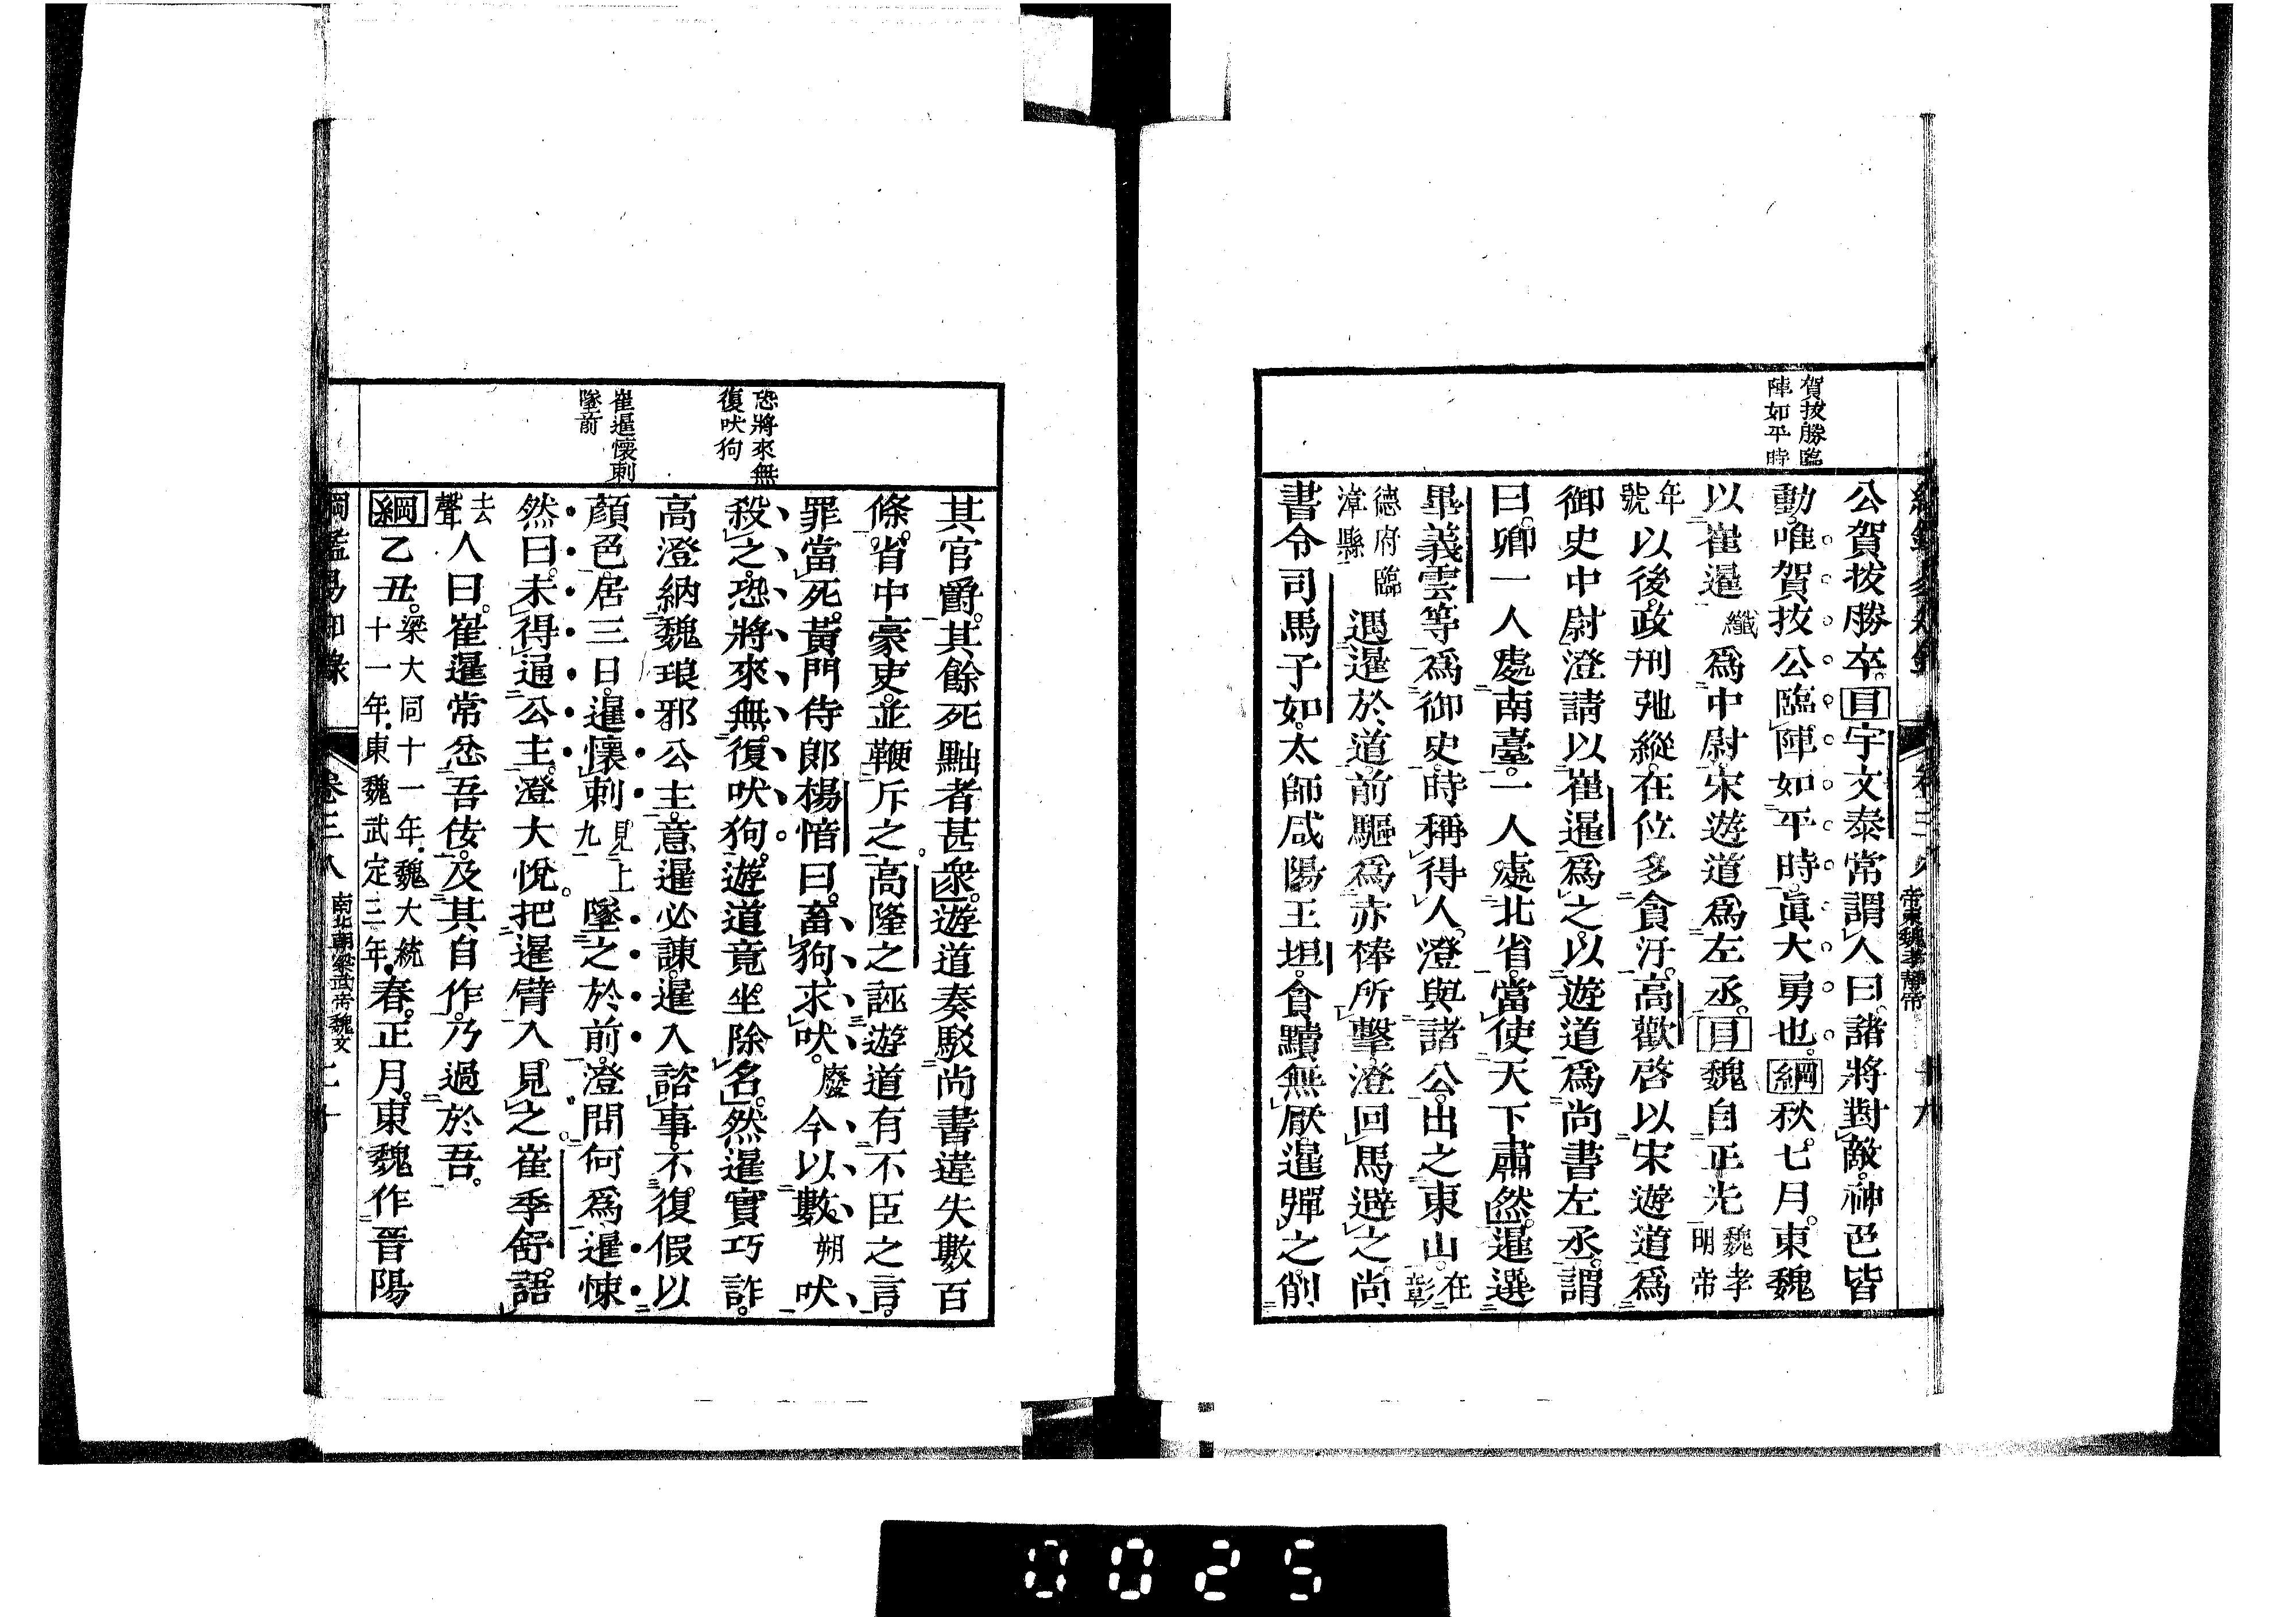 賀拔勝臨
陣如平時
公賀拔勝卒。目宇文泰常謂人曰。諸將對敵。神色皆
動。唯賀拔公臨陣如平時。眞大勇也。綱秋。七月。東魏
以崔暹纖爲中尉。宋遊道爲左丞。目魏自正光魏孝明帝
年號以後。政刑弛縱。在位多貪汙。高歡啓以宋遊道爲
御史中尉。澄請以崔暹爲之。以遊道爲尚書左丞。謂
曰。卿一人處南臺。一人處北省。當使天下肅然。暹選
畢義雲等爲御史。時稱得人。澄與諸公出之東山。在彰
德府臨漳縣遇暹於道。前驅爲赤棒所擊。澄回馬避之。尚
書令司馬子如。太師咸陽王坦。貪黷無厭。暹彈之。削
恐將來無
復吠狗
崔暹懷刺
墜前
其官爵。其餘死黜者甚衆。遊道奏駁尚書違失數百
條。省中豪吏。並鞭斥之。高隆之誣遊道有不臣之言。
罪當死。黃門侍郎楊愔曰。畜狗求吠。廢今以數朔吠
殺之。恐將來無復吠狗。遊道竟坐除名。然暹實巧詐。
高澄納魏琅邪公主。意暹必諫。暹入諮事。不復假以
顏色。居三日。暹懷刺見上九墜之於前。澄問何爲。暹悚
然曰。未得通公主。澄大悅。把暹臂入見之。崔季舒語
去聲人曰。崔暹常忿吾佞。及其自作。乃過於吾。
綱乙丑。梁大同十一年。魏大統十一年。東魏武定三年。春。正月。東魏作晉陽
綱鑑易知錄 卷三八 南北朝梁武帝魏文 二十
0025